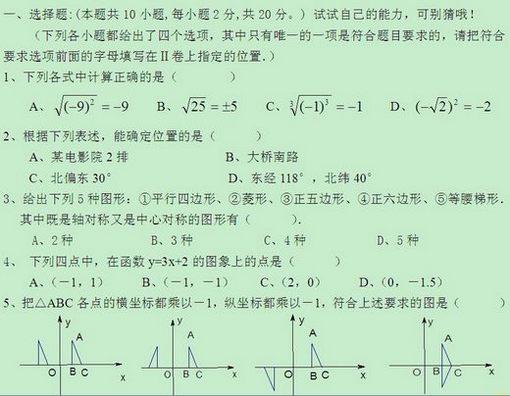 一、选择题:(本题共 10 小题,每小题 2 分,共 20 分。) 试试自己的能力,可别猜哦!
(下列各小题都给出了四个选项,其中只有唯一的一项是符合题目要求的,请把符合
要求选项前面的字母填写在Ⅱ卷上指定的位置.)
1、下列各式中计算正确的是( )
A、√(-9)² = -9 B、√25 = ±5 C、∛(-1)³ = -1 D、(-√2)² = -2
2、根据下列表述,能确定位置的是( )
A、某电影院 2 排 B、大桥南路
C、北偏东 30° D、东经 118°,北纬 40°
3、给出下列 5 种图形:①平行四边形、②菱形、③正五边形、④正六边形、⑤等腰梯形.
其中既是轴对称又是中心对称的图形有( ).
A、2 种 B、3 种 C、4 种 D、5 种
4、下列四点中,在函数 y=3x+2 的图象上的点是( )
A、(-1,1) B、(-1,-1) C、(2,0) D、(0,-1.5)
5、把△ABC 各点的横坐标都乘以-1,纵坐标都乘以-1,符合上述要求的图是( )
y A O B C x y A O B C x y A O B C x y A O B C x